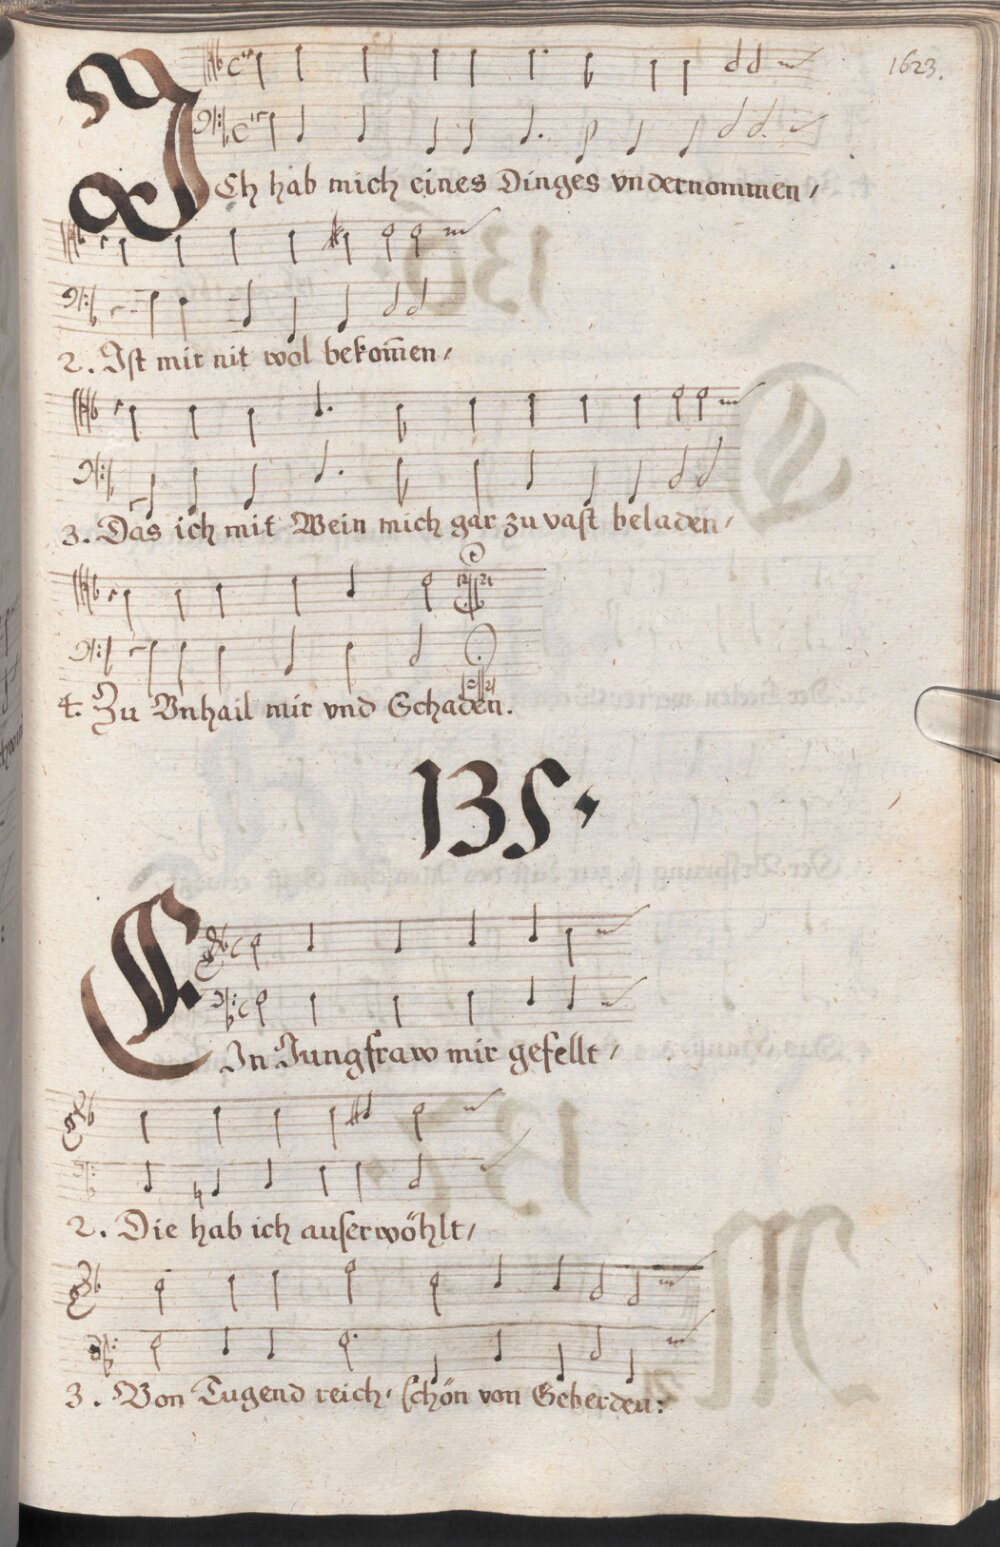 1623.
ICh hab mich eines Dinges vndernommen /
2. Ist mir nit wol bekom̃en /
3. Das ich mit Wein mich gar zu vast beladen /
4. Zu Vnhail mir vnd Schaden.
135.
EIn Jungfraw mir gefellt /
2. Die hab ich auserwöhlt /
3. Von Tugend reich / schön von Geberden: